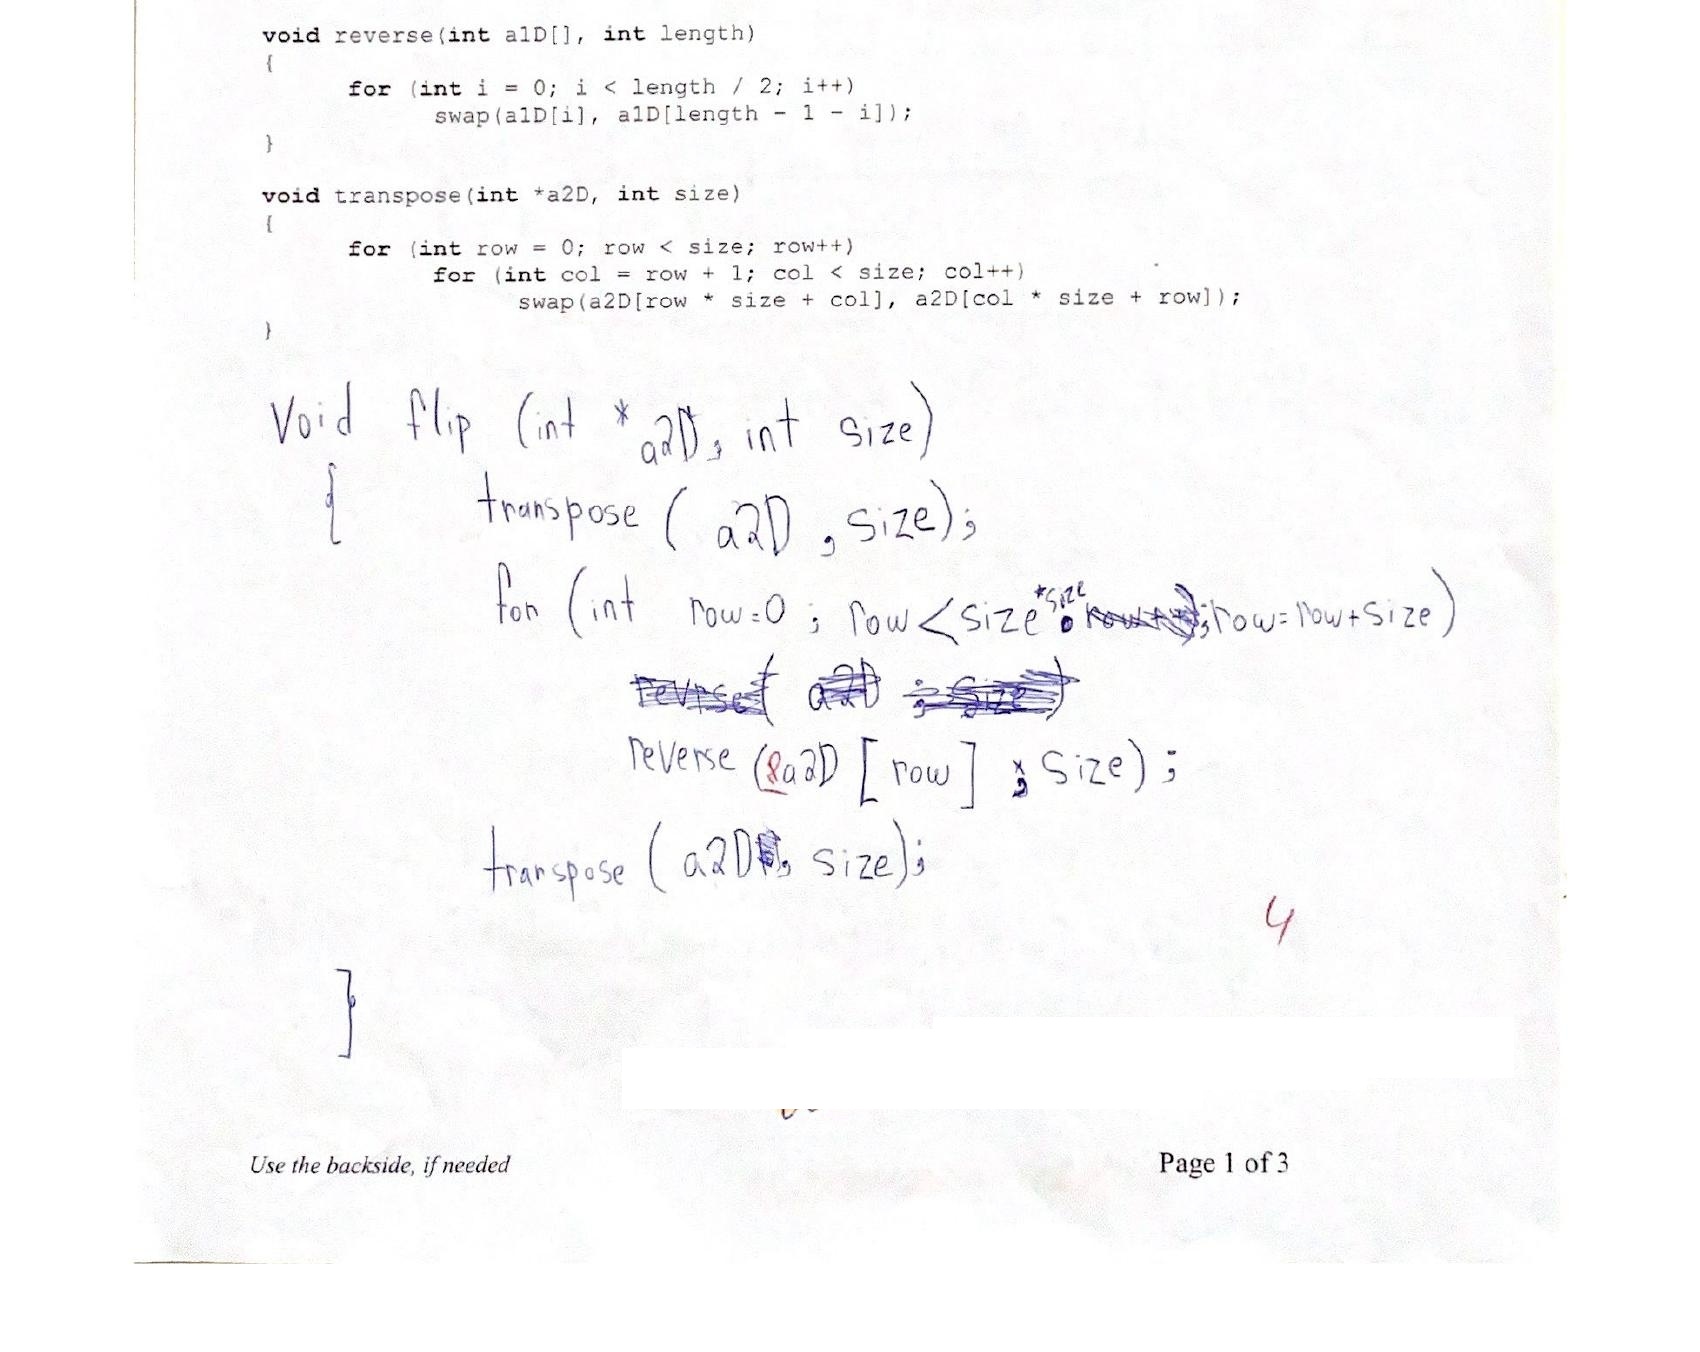 void reverse(int a1D[], int length)
{
for (int i = 0; i < length / 2; i++)
swap(a1D[i], a1D[length - 1 - i]);
}
void transpose(int *a2D, int size)
{
for (int row = 0; row < size; row++)
for (int col = row + 1; col < size; col++)
swap(a2D[row * size + col], a2D[col * size + row]);
}
Void flip (int *a2D, int size)
{ transpose ( a2D , size);
for (int row=0 ; row<size*size ; row=row+size)
reverse (&a2D [row] , size) ;
transpose ( a2D , size);
4
}
Use the backside, if needed Page 1 of 3